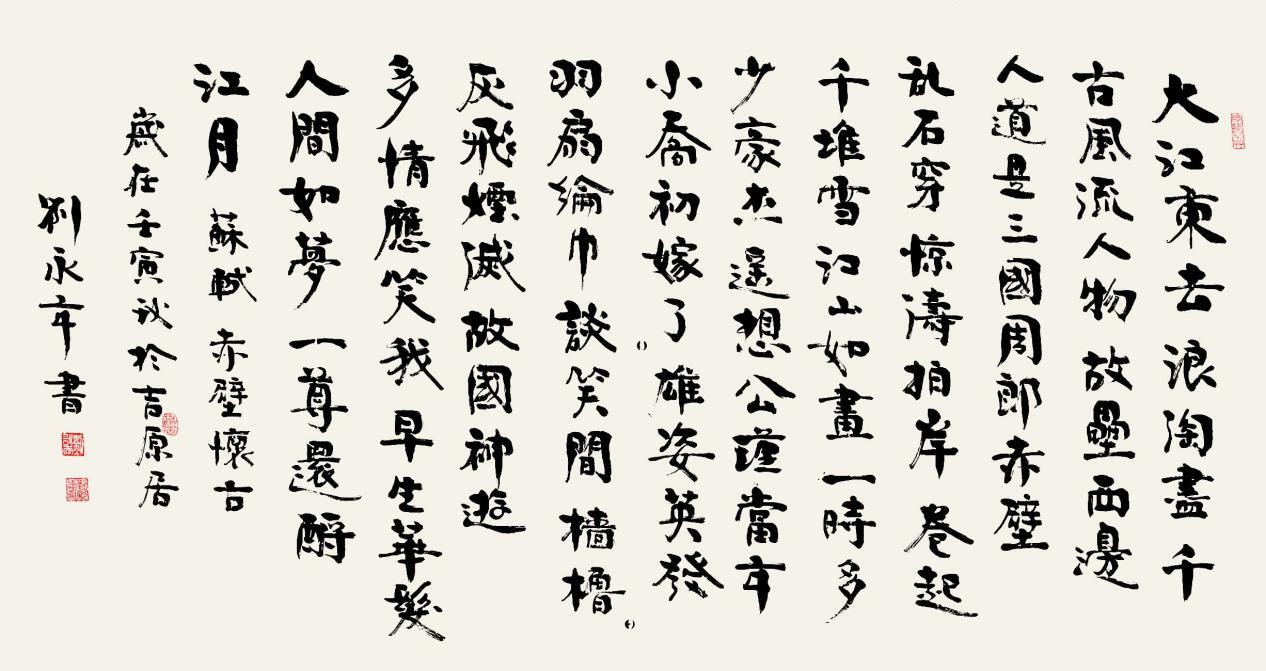 大江東去浪淘盡千
古風流人物故壘西邊
人道是三國周郎赤壁
乱石穿惊濤拍岸卷起
千堆雪江山如畫一時多
少豪杰遥想公瑾當年
小喬初嫁了雄姿英發
羽扇綸巾談笑間檣櫓
灰飛煙滅故國神遊
多情應笑我早生華髮
人間如夢一尊還酹
江月 蘇軾 赤壁懷古
歲在壬寅秋於吉原居
劉永年書